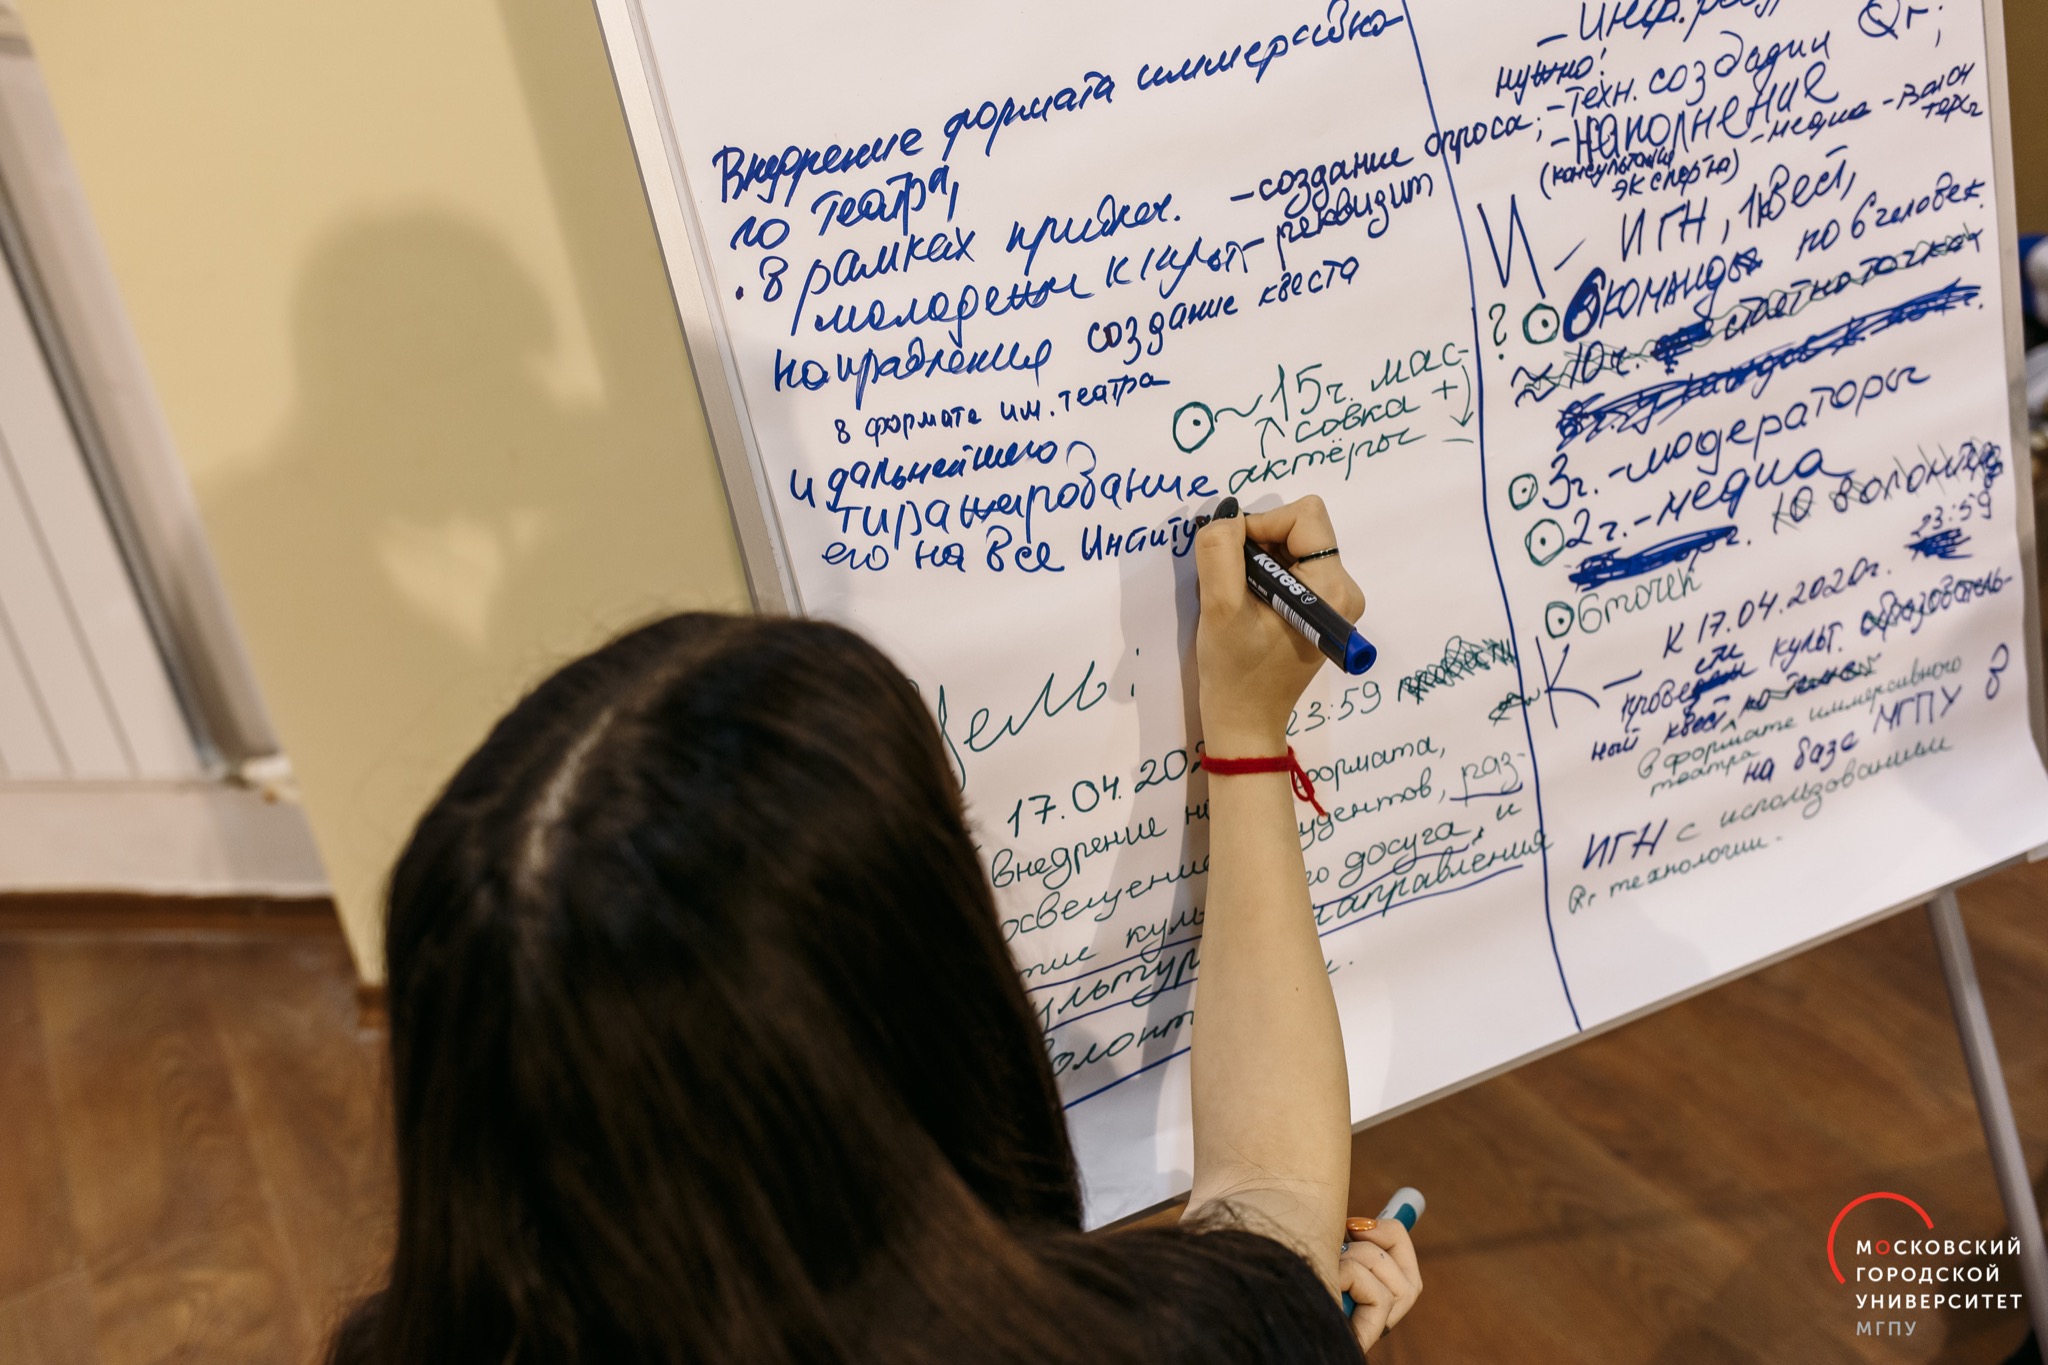 Внедрение формата иммерсивно-
го театра,
. В рамках
молодежн культ-
направления создание квеста
в формате им. театра
и дальнейшего
тиражирование
его на все Институ
- создание опроса;
реквизит
~15ч. мас-
совка +
актёры -
Цель:
17.04.202 23:59
внедрение но формата,
освещение удентов, раз-
тие куль го досуга, и
ультур направления
волонт
- Инф.
нужно!
- Техн. создации Qr;
- наполнение
(консультация
эксперта)
- медиа - волон
теры
И - ИГН, 1 квест,
6 команды по 6 человек.
?
≈ 10ч. стоят на точках
3ч. - модераторы
2ч. - медиа
10 волонтёр
6 точек
23:59
К - К 17.04.2020г.
провести культ. образователь-
ный квест
в формате иммерсивного
театра на базе МГПУ в
ИГН с использованием
Qr технологии.
kores
МОСКОВСКИЙ
ГОРОДСКОЙ
УНИВЕРСИТЕТ
МГПУ